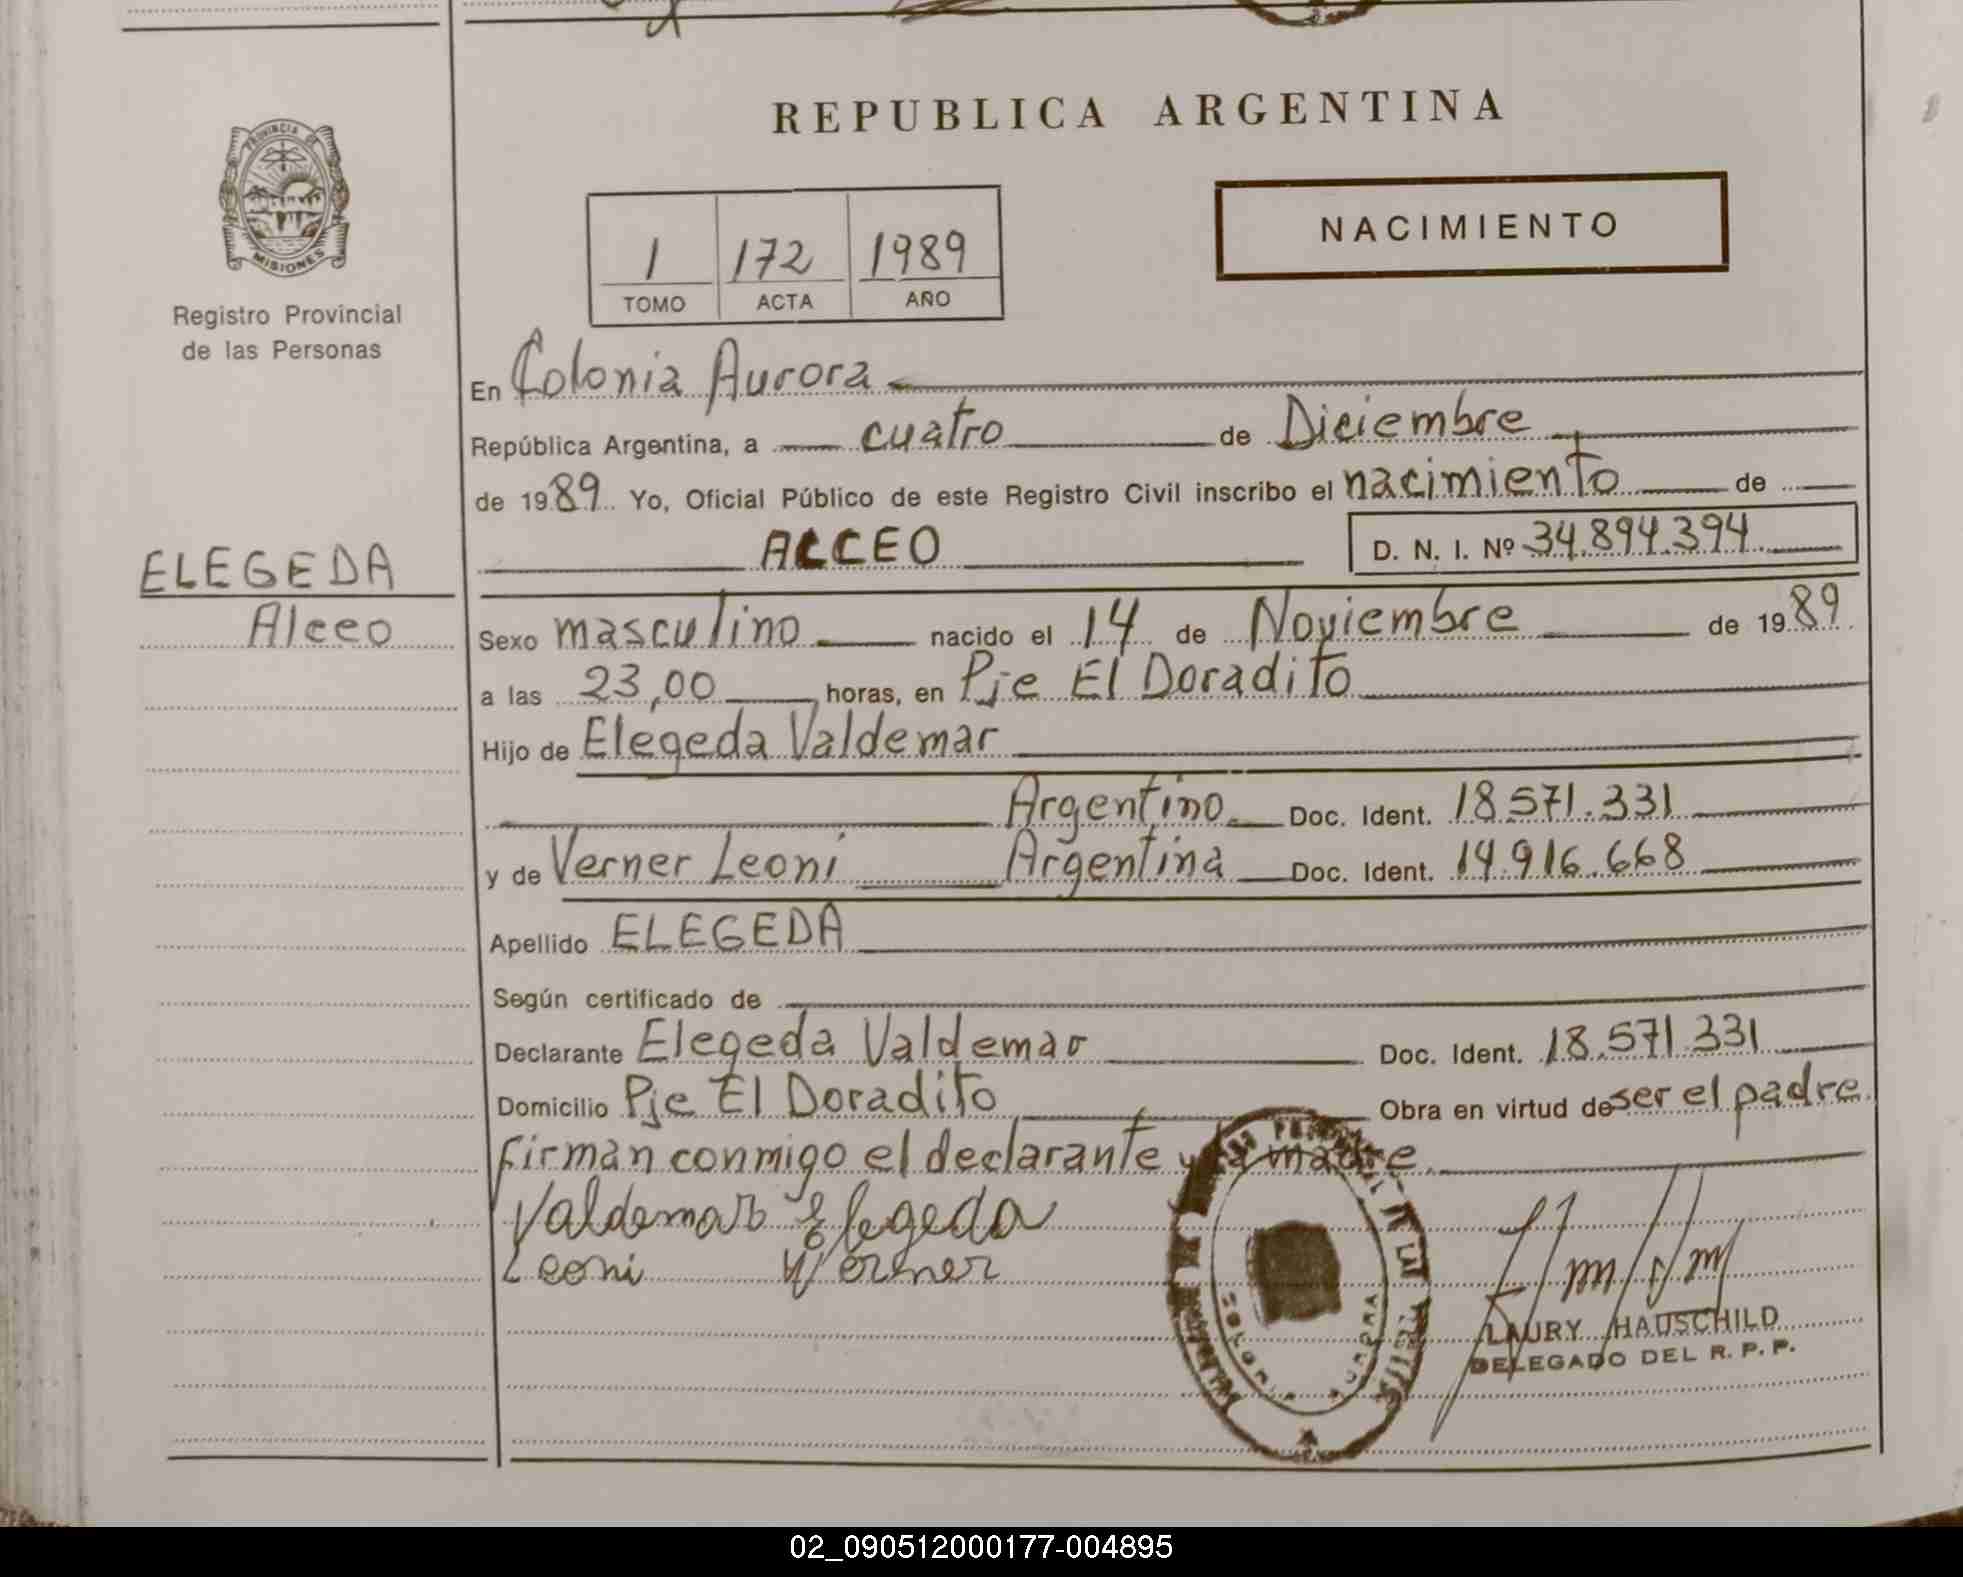 REPUBLICA ARGENTINA
PROVINCIA DE
MISIONES
Registro Provincial
de las Personas
NACIMIENTO
1 172 1989
TOMO ACTA AÑO
En Colonia Aurora
República Argentina, a cuatro de Diciembre
de 1989 Yo, Oficial Público de este Registro Civil inscribo el nacimiento de
ALCEO D. N. I. Nº 34.894.394
ELEGEDA
Alceo
Sexo masculino nacido el 14 de Noviembre de 1989
a las 23,00 horas, en Pje El Doradito
Hijo de Elegeda Valdemar
Argentino Doc. Ident. 18.571.331
y de Verner Leoni Argentina Doc. Ident. 14.916.668
Apellido ELEGEDA
Según certificado de
Declarante Elegeda Valdemar Doc. Ident. 18.571.331
Domicilio Pje El Doradito Obra en virtud de ser el padre.
Firman conmigo el declarante y la madre.
Valdemar Elegeda
Leoni Werner
COLONIA AURORA
LAURY HAUSCHILD
DELEGADO DEL R. P. P.
02_090512000177-004895